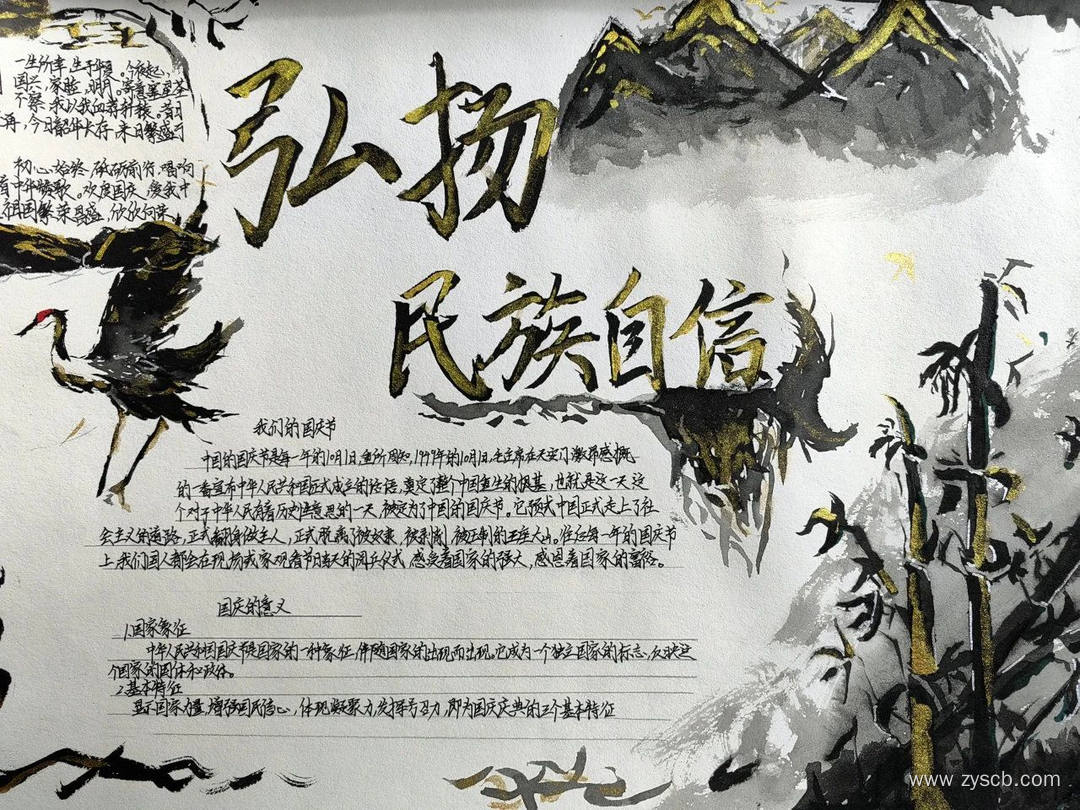 一生所幸,生于华夏。今夜起,
国兴,家盛,明月。寄意寒星荃
不察,我以我血荐轩辕。昔日
不再,今日韶华大好,来日繁盛可
初心始终,砥砺前行,唱响
着中华赞歌。欢度国庆,爱我中
祖国繁荣昌盛,欣欣向荣
弘扬
民族自信
我们的国庆节
中国的国庆节是每一年的10月1日,众所周知,1949年的10月1日,毛主席在天安门激昂感慨
的一番宣布中华人民共和国正式成立的话语,奠定了整个中国重生的根基,也就是这一天,这
个对于中华人民有着历史性意思的一天,被定为了中国的国庆节。它预式中国正式走上了社
会主义的道路,正式翻身做主人,正式脱离了被奴隶,被剥削,被压制的三座大山。往后每一年的国庆节
上,我们国人都会在现场或家观看节日当天的阅兵仪式,感受着国家的强大,感恩着国家的富裕。
国庆的意义
1.国家象征
中华人民共和国国庆节是国家的一种象征,伴随国家的出现而出现。它成为一个独立国家的标志,反映这
个国家的国体和政体。
2.基本特征
显示国家力量,增强国民信心,体现凝聚力,发挥号召力,即为国庆庆典的三个基本特征
www.zyscb.com